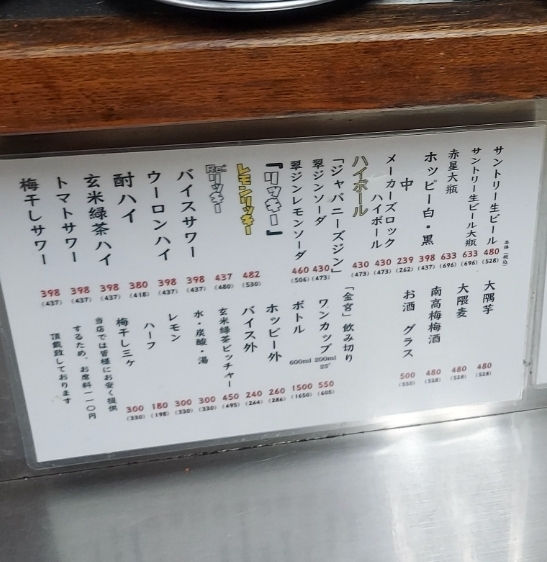 サントリー生ビール 480 (528)
本体 (税込)
サントリー生ビール大瓶 633 (696)
赤星大瓶 633 (696)
ホッピー白・黒 398 (437)
中 239 (262)
メーカーズロック 430 (473)
ハイボール 430 (473)
ハイボール
「ジャパニーズジン」
翠ジンソーダ 430 (473)
翠ジンレモンソーダ 460 (506)
『リッキー』
レモンリッキー 482 (530)
リッキー 437 (480)
バイスサワー 398 (437)
ウーロンハイ 398 (437)
酎ハイ 380 (418)
玄米緑茶ハイ 398 (437)
トマトサワー 398 (437)
梅干しサワー 398 (437)
大隅芋 480 (528)
大隈麦 480 (528)
南高梅梅酒 480 (528)
お酒 グラス 500 (550)
「金宮」飲み切り
ワンカップ 200ml 25° 550 (605)
ボトル 600ml 1500 (1650)
ホッピー外 260 (286)
バイス外 240 (264)
玄米緑茶ピッチャー 450 (495)
水・炭酸・湯 300 (330)
レモン 300 (330)
ハーフ 180 (198)
梅干し三ケ 300 (330)
当店では皆様にお安く提供
するため、お席料一一〇円
頂戴致しております